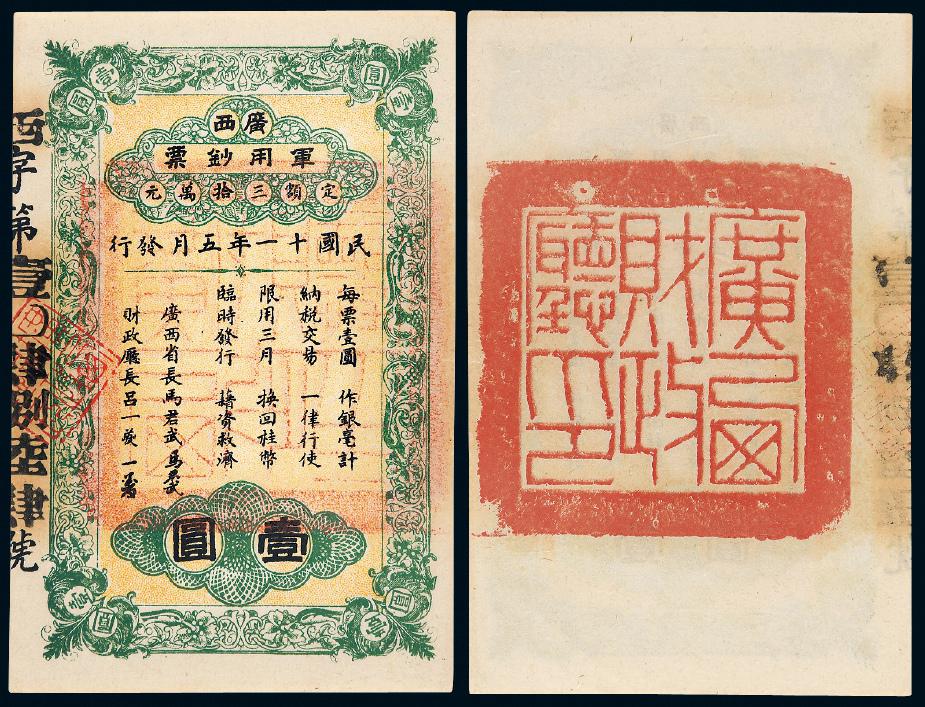 廣西
軍用鈔票
定額三拾萬元
民國十一年五月發行
每票壹圓　作銀毫計
納稅交易　一律行使
限用三月　換回桂幣
臨時發行　藉資救濟
廣西省長馬君武
財政廳長呂一夔
壹圓
壹
圓
壹
圓
壹
圓
壹
圓
西字第壹
肆捌陸肆號
廣西財政廳印